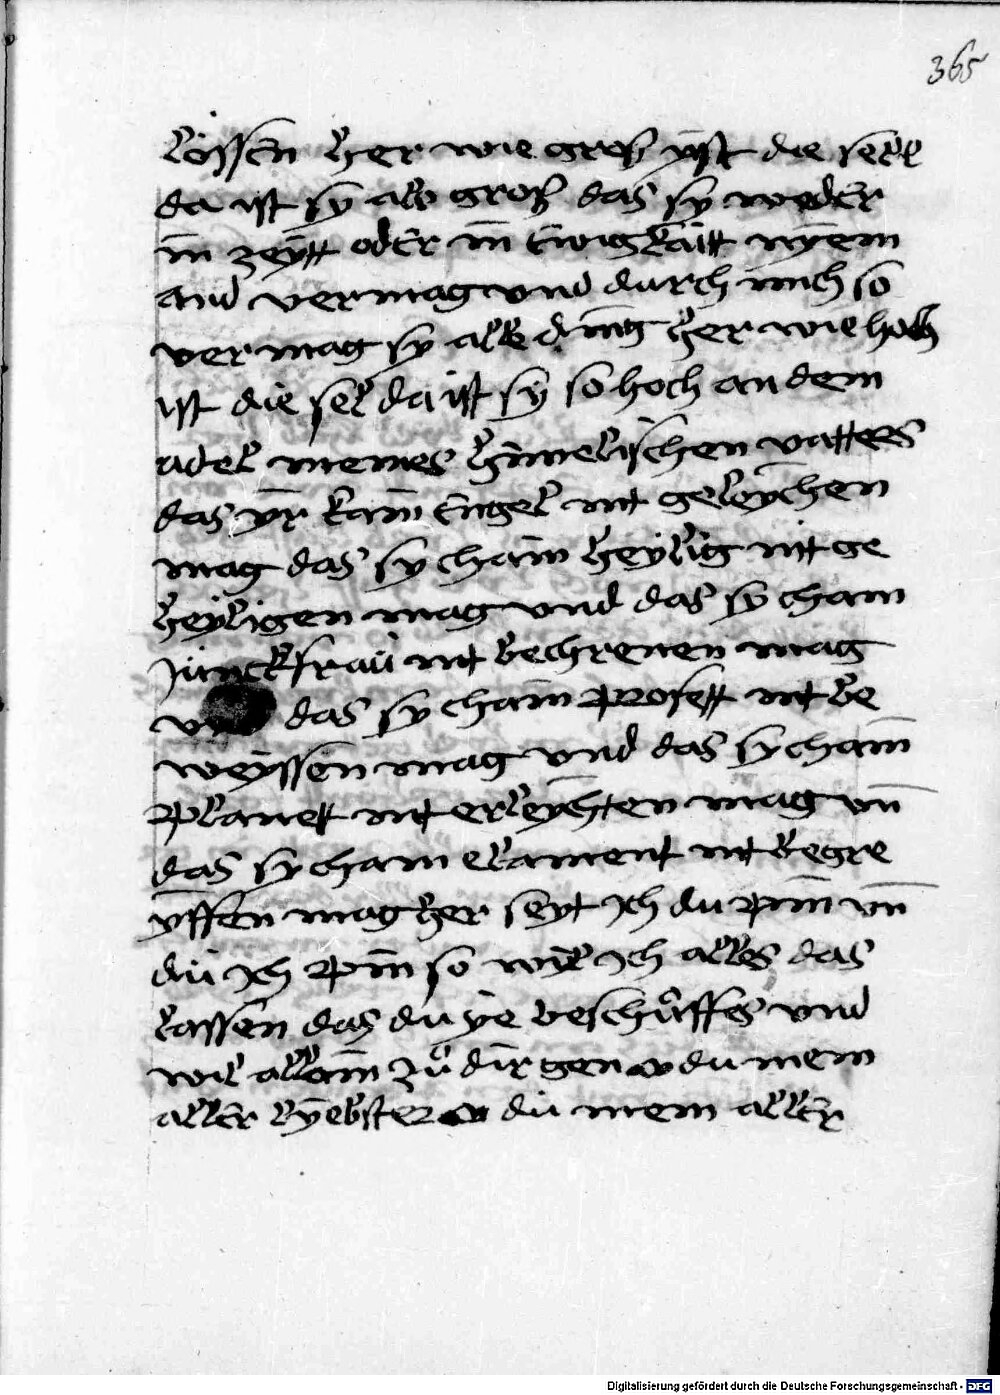 365
lössen her wie groß yst die sell
da ist sy als groß das sy weder
in zeytt oder in ewigkaitt nyem
and vermag und durch mich so
vermag sy alle ding her wie hoch
ist die sel da ist sy so hoch an dem
adel meines himelischen vatters
das yr kain engel nit geleychen
mag das sy chain heylig nit ge
heyligen mag und das sy chain
junckfrau nit bechrenen mag
das sy chain profett nit be
weyssen mag und das sy chain
planett nit erleychten mag un̄
das sy chain elament nit begre
yffen mag her seyt ich du pin un̄
du ich pin so wil ich alles das
lassen das du ye beschüffes und
wil allain zů dir gen o du mein
aller lyebster o du mein aller
Digitalisierung gefördert durch die Deutsche Forschungsgemeinschaft - DFG